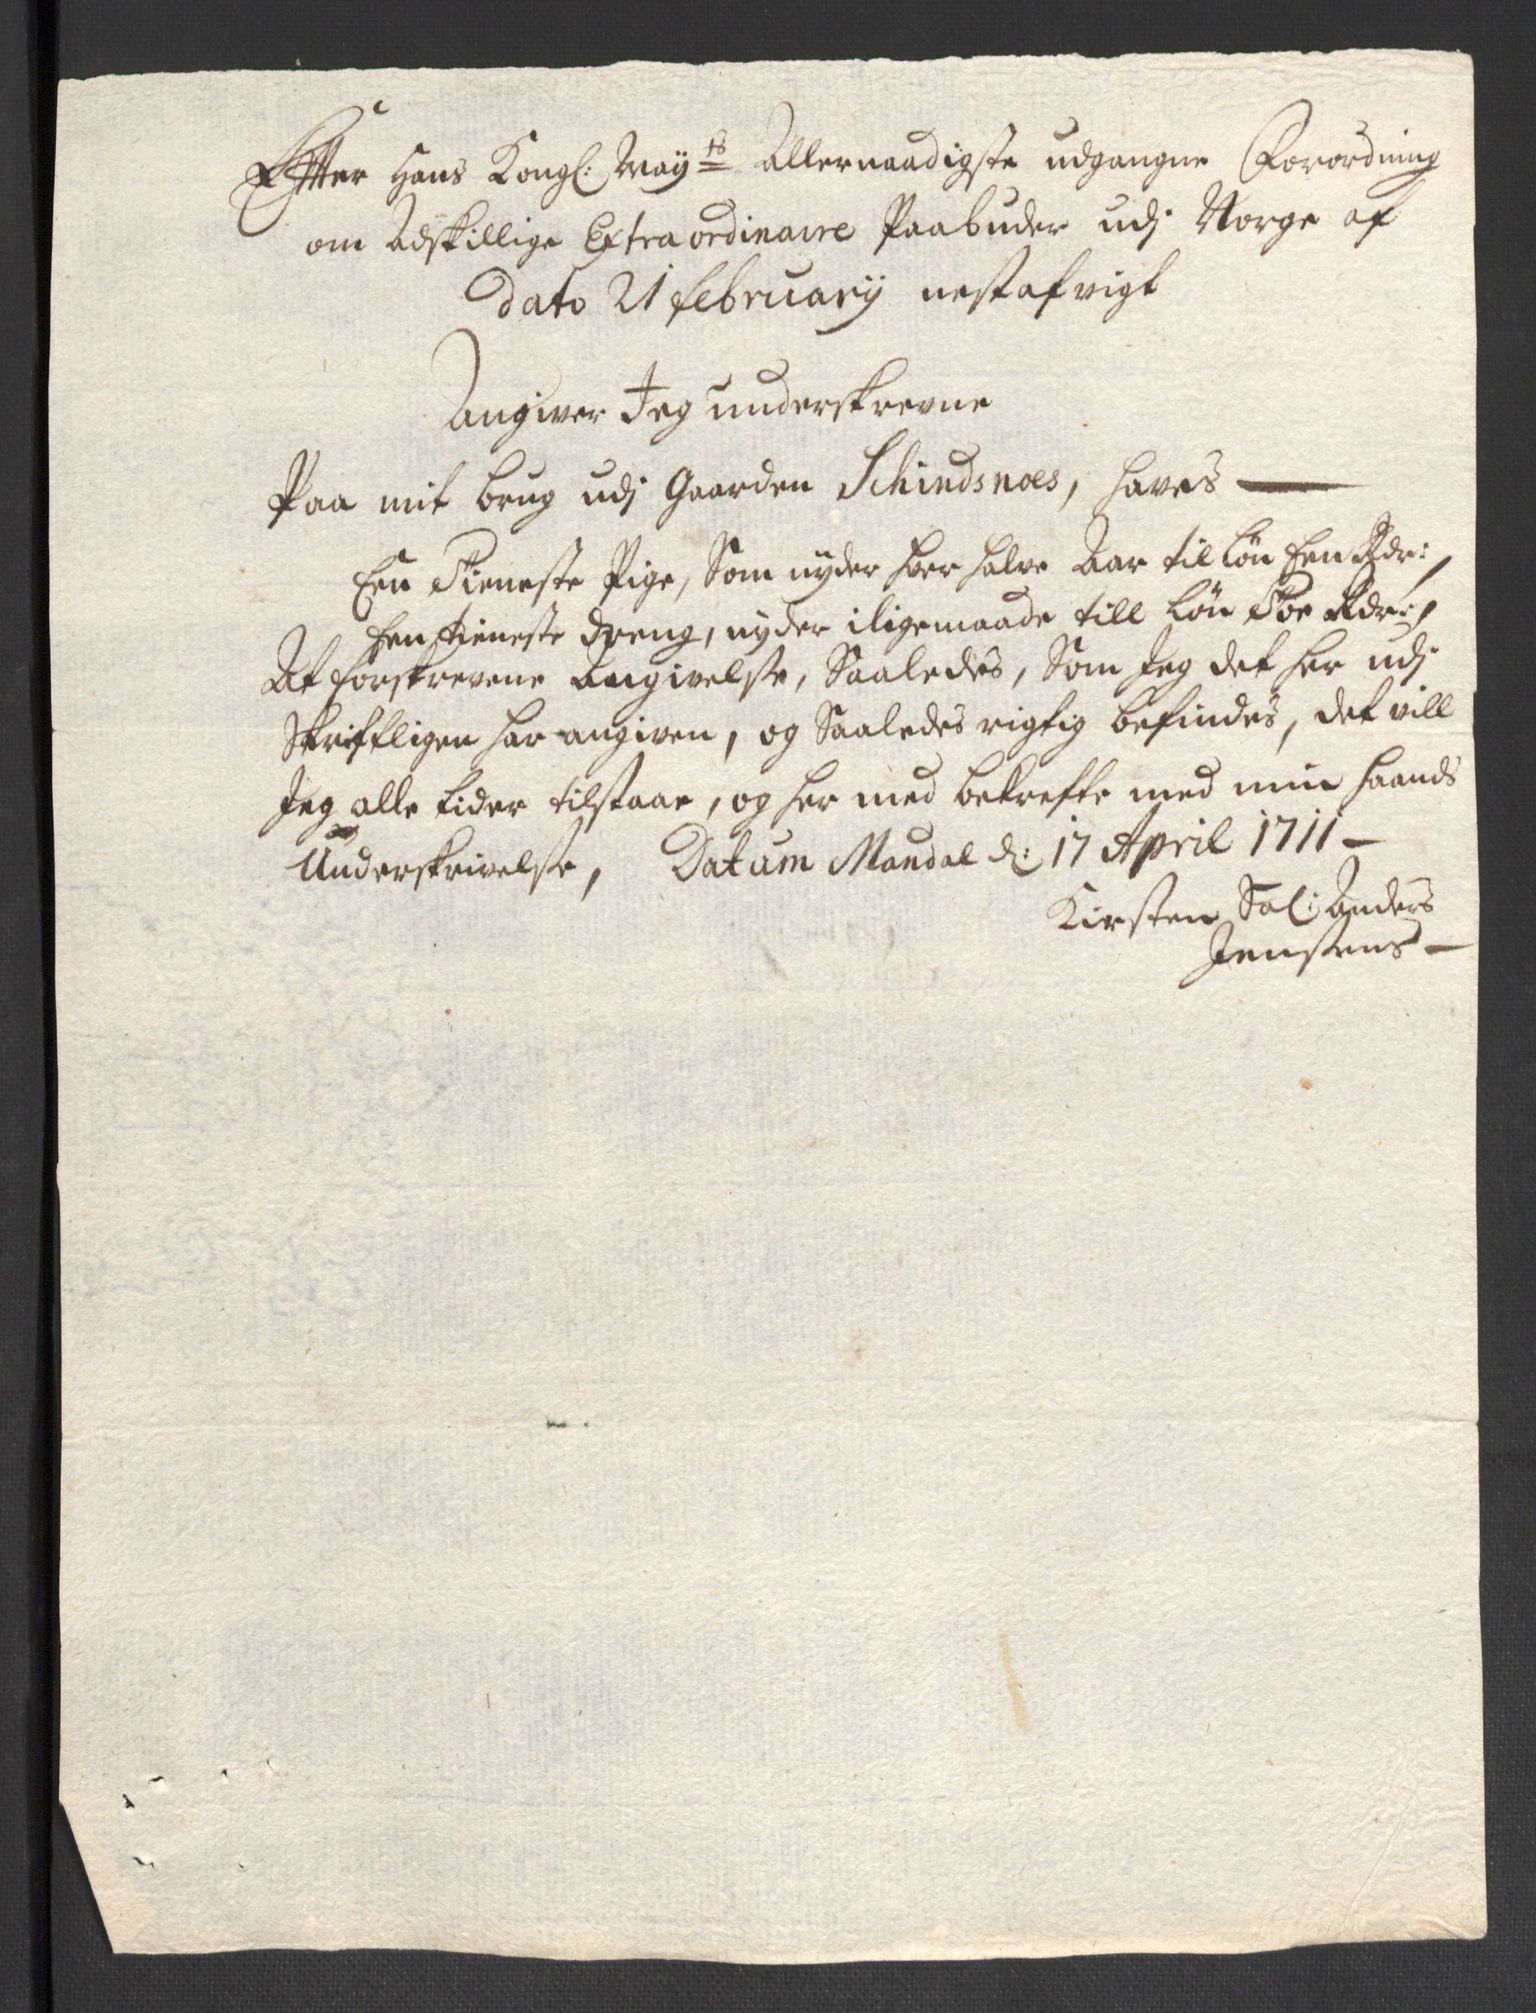 Effter Hans Kongl: Mayts Allernaadigste udgangne Forordning
om Adskillige Extraordinaire Paabuder udj Norge af
dato 21 february nestafvigt
Angiver Jeg underskrevne
Paa mit brug udj Gaarden Schindsnoes, haves
Een Tieneste Pige, Som nyder hver halve Aar til løn Een Rdr:,
Een tieneste dreng, nyder iligemaade till løn Toe Rdr:,
At forskrevene Angivelse, Saaledes, Som Jeg det her udj
Skrifftligen har angiven, og Saaledes rigtig befindes, det vill
Jeg alle tider tilstaae, og her med bekrefte med min haands
Underskrivelse, Datum Mandal d: 17 April 1711
Kirsten Sal: Anders
Jensens